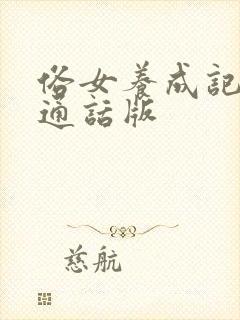 俗女養成記
通話版
慈航